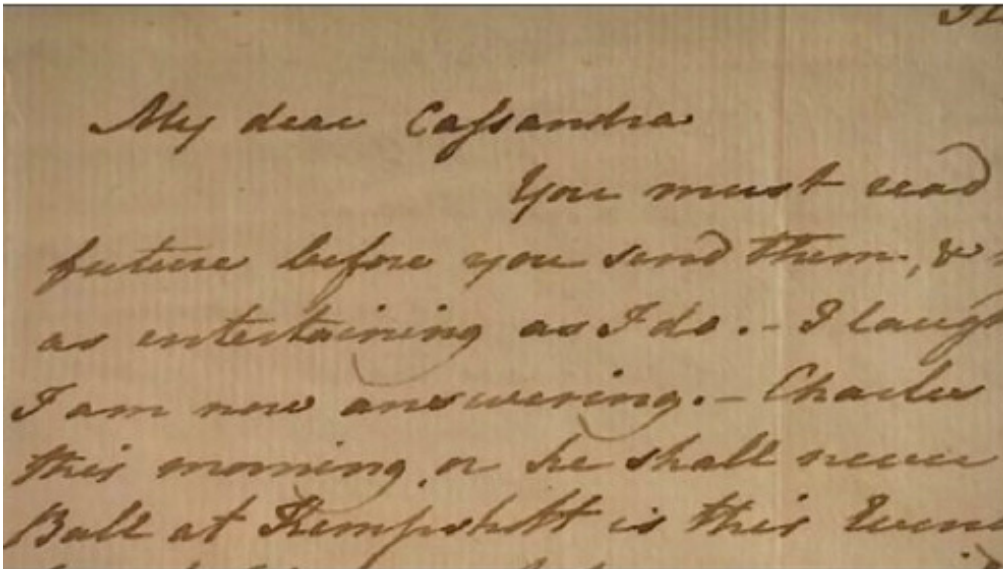 My dear Cassandra
You must read
future before you send them, &
as entertaining as I do. - I laugh
I am now answering. - Charles
this morning, or he shall never
Ball at Kempshott is this Even